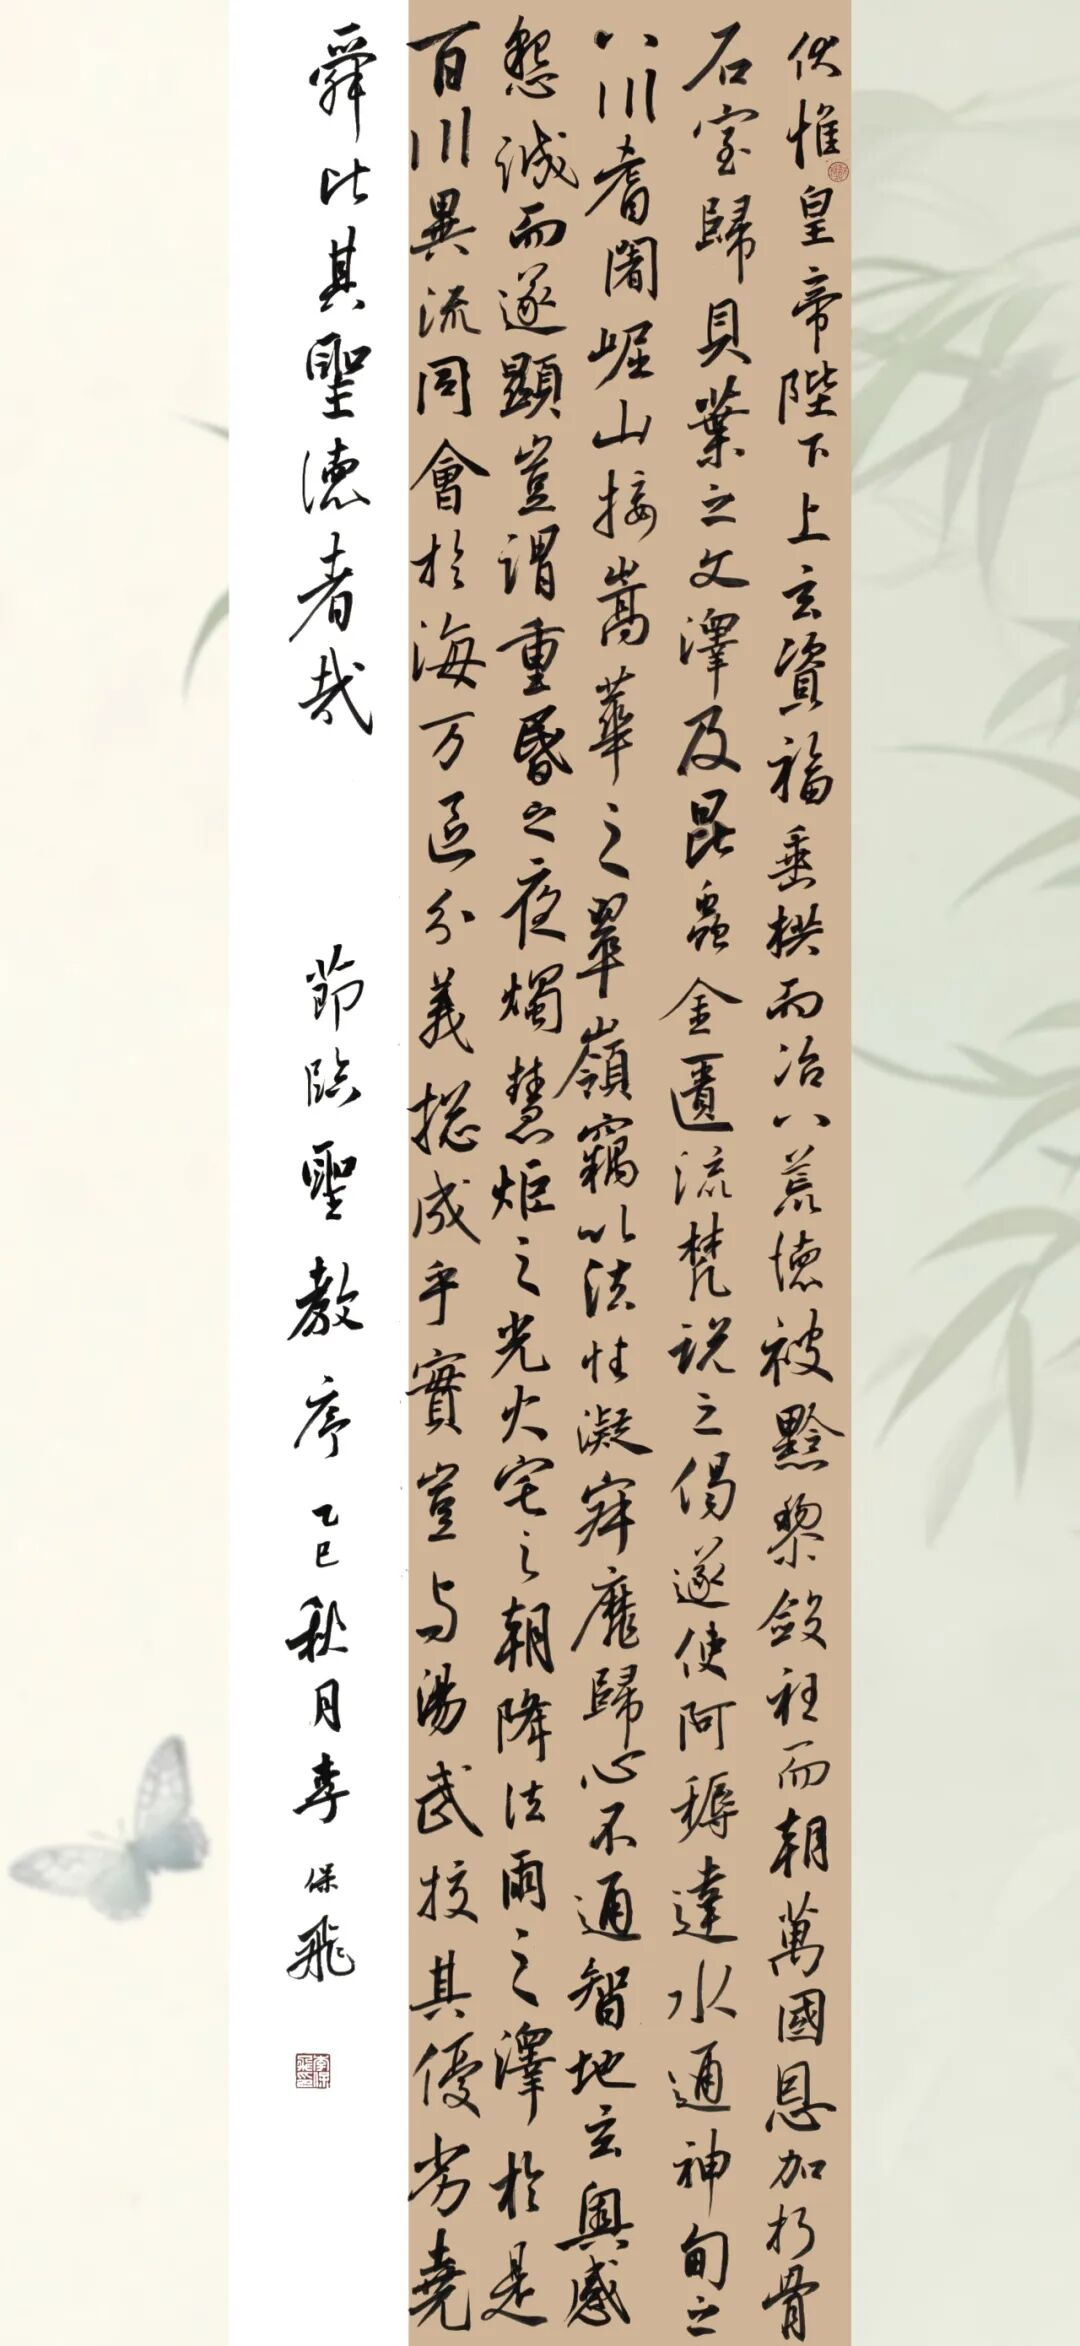 伏惟皇帝陛下上玄資福垂拱而治八荒德被黔黎斂衽而朝萬國恩加朽骨
石室歸貝葉之文澤及昆蟲金匱流梵說之偈遂使阿耨達水通神甸之
八川耆闍崛山接嵩華之翠嶺竊以法性凝寂靡歸心不通智地玄奧感
懇誠而遂顯豈謂重昏之夜燭慧炬之光火宅之朝降法雨之澤於是
百川異流同會於海万區分義揔成乎實豈与湯武挍其優劣堯
舜比其聖德者哉
節臨聖教序 乙巳秋月李保飛